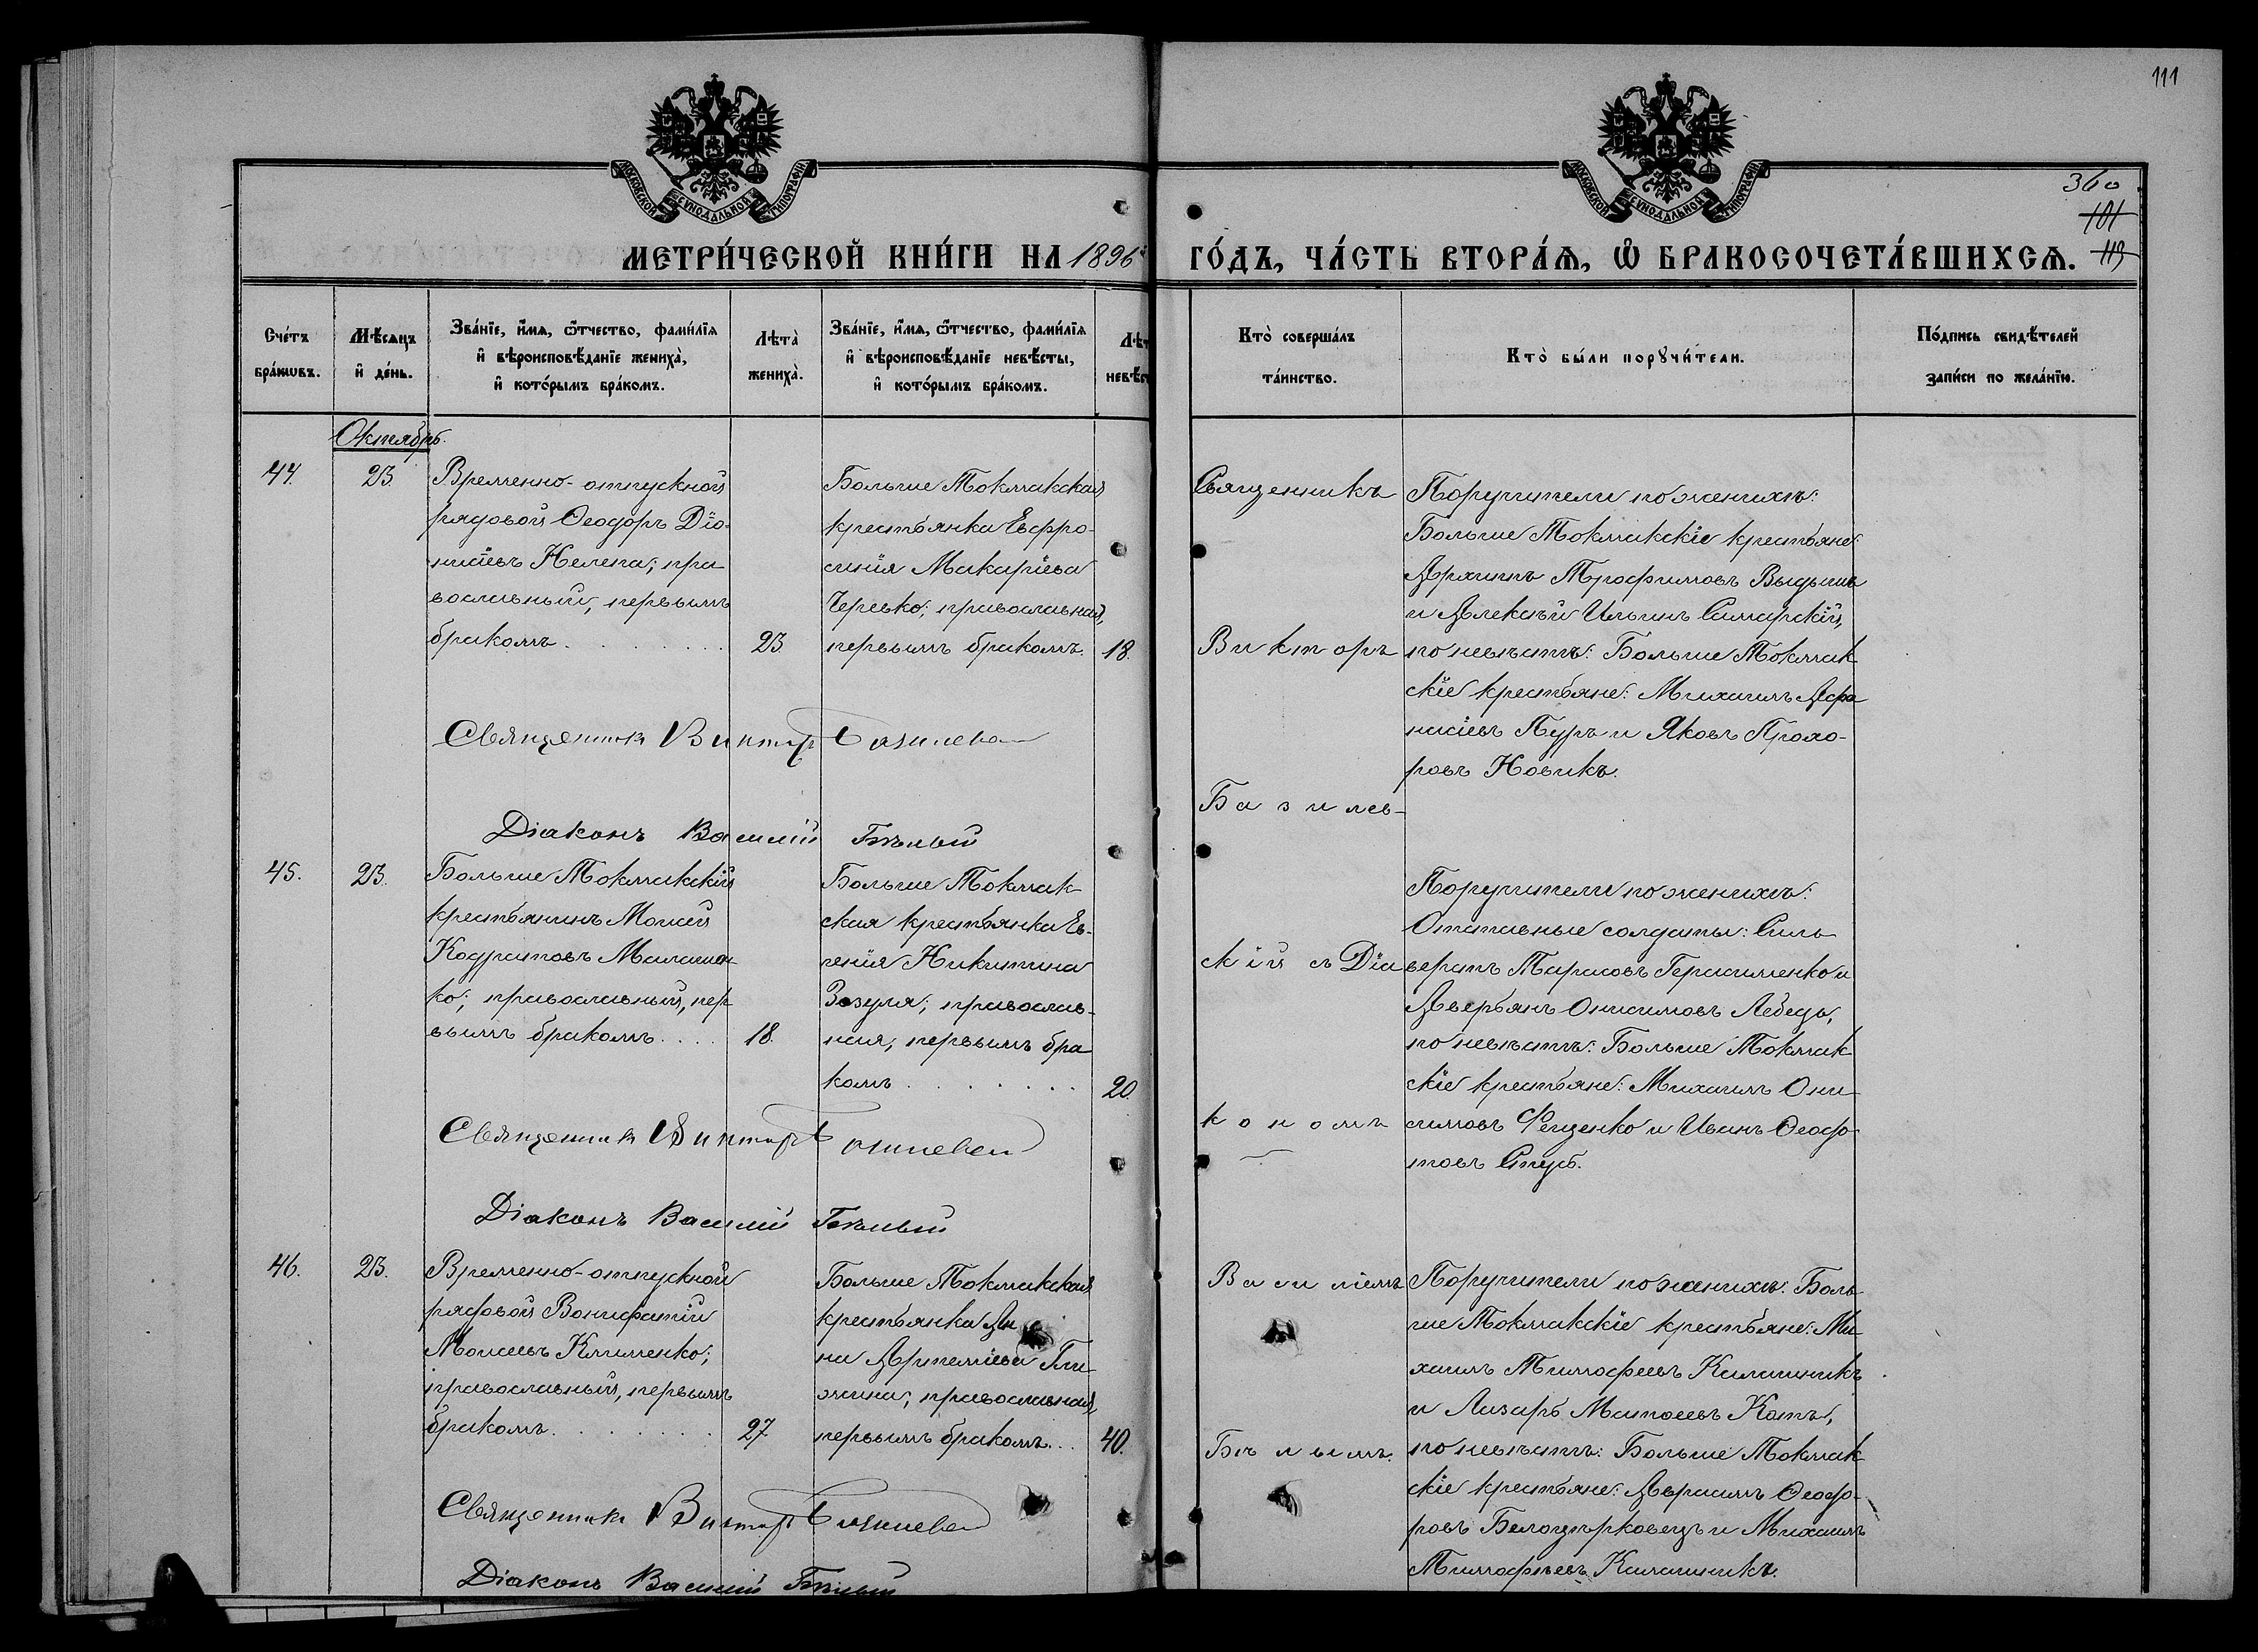 111
МОСКОВСКОЙ СѴНОДАЛЬНОЙ ТИПОГРАФІИ
МОСКОВСКОЙ СѴНОДАЛЬНОЙ ТИПОГРАФІИ
360
101
113
МЕТРИ́ЧЕСКОЙ КНИ́ГИ НА 1896 ГО́ДЪ, ЧА́СТЬ ВТОРА́Ѧ, Ѽ БРАКОСОЧЕТА́ВШИХСѦ.
Сче́тъ бра́кѡвъ.
Мѣ́сѧцъ и҆ де́нь.
Зва́нїе, и҆́мѧ, ѻ҆́тчество, фами́лїѧ и҆ вѣроисповѣ́данїе жениха̀, и҆ кото́рымъ бра́комъ.
Лѣта̀ жениха̀.
Зва́нїе, и҆́мѧ, ѻ҆́тчество, фами́лїѧ и҆ вѣроисповѣ́данїе невѣ́сты, и҆ кото́рымъ бра́комъ.
Лѣт невѣс
Кто̀ соверша́лъ та́инство.
Кто̀ бы́ли порꙋчи́тели.
По́дпись свидѣ́телей за́писи по жела́нїю.
Октябрь.
44.
23.
Временно-отпускной
рядовой Ѳеодоръ Діо-
нисіевъ Нелепа; пра
вославный, первымъ
бракомъ . . . . . . . 23.
Больше Токмакская
крестьянка Евфро-
синія Макаріева
Черевко; православная,
первымъ бракомъ. 18.
Священникъ
Викторъ
Базилев-
скій съ Діа
кономъ
Василіемъ
Бѣлымъ.
Поручители по женихѣ:
Больше Токмакскіе крестьяне
Архипъ Трофимовъ
и Алексѣй Ильинъ Самарскій,
по невѣстѣ: Больше Токмак
скіе крестьяне: Михаилъ Афа
насіевъ Пуръ и Яковъ Прохо-
ровъ Новикъ.
Священникъ Викторъ Базилевс
Діаконъ Василій Бѣлый
45.
23.
Больше Токмакскій
крестьянинъ Моисей
Кодратовъ Малашен
ко; православный, пер
вымъ бракомъ . . . . 18.
Больше Токмак
ская крестьянка Ев-
генія Никитина
Зозуля; православ-
ная, первымъ бра
комъ . . . . . . . 20.
Поручители по женихѣ:
Отставные солдаты: Силь
верстъ Тарасовъ Герасименко и
Аверьянъ Онисимовъ Лебедь,
по невѣстѣ: Больше Токмак
скіе крестьяне: Михаилъ Они
симовъ Фещенко и Иванъ Ѳеодо-
товъ Ступ.
Священникъ Викторъ Базилевс
Діаконъ Василій Бѣлый
46.
23.
Временно-отпускной
рядовой Вонифатій
Моисеевъ Клименко;
православный, первымъ
бракомъ . . . . . . . 27
Больше Токмакская
крестьянка Ан
на Артеміева Гли
жина; православная,
первымъ бракомъ . . 40.
Поручители по женихѣ: Боль
ше Токмакскіе крестьяне: Ми
хаилъ Тимофеевъ Калашникъ
и Лазарь Матвеевъ Котъ,
по невѣстѣ: Больше Токмак
скіе крестьяне: Аврамъ Ѳеодо-
ровъ Белоцерковецъ и Михаилъ
Тимофѣевъ Калашникъ.
Священникъ Викторъ Базилевс
Діаконъ Василій Бѣлый